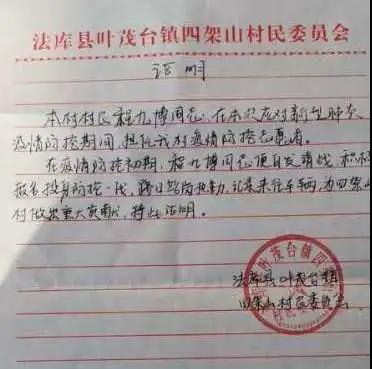 法库县叶茂台镇四架山村民委员会
证明
本村村民程九博同志,在本次应对新型肺炎
疫情防控期间,担任我村疫情防控志愿者。
在疫情防控初期,程九博同志便自发请战,积极
报名投身防控一线,跨日站岗执勤,记录来往车辆,为四架山
村做出重大贡献,特此证明。
法库县叶茂台镇
四架山村民委员会